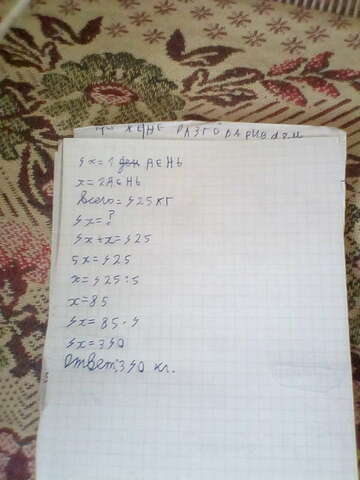 ЖЕНЕ РАЗГОВАРИВАЛИ
4x = 1 ДЕНЬ
x = 2 ДЕНЬ
Всего = 425 КГ
4x = ?
4x + x = 425
5x = 425
x = 425 : 5
x = 85
4x = 85 · 4
4x = 340
Ответ: 340 кг.